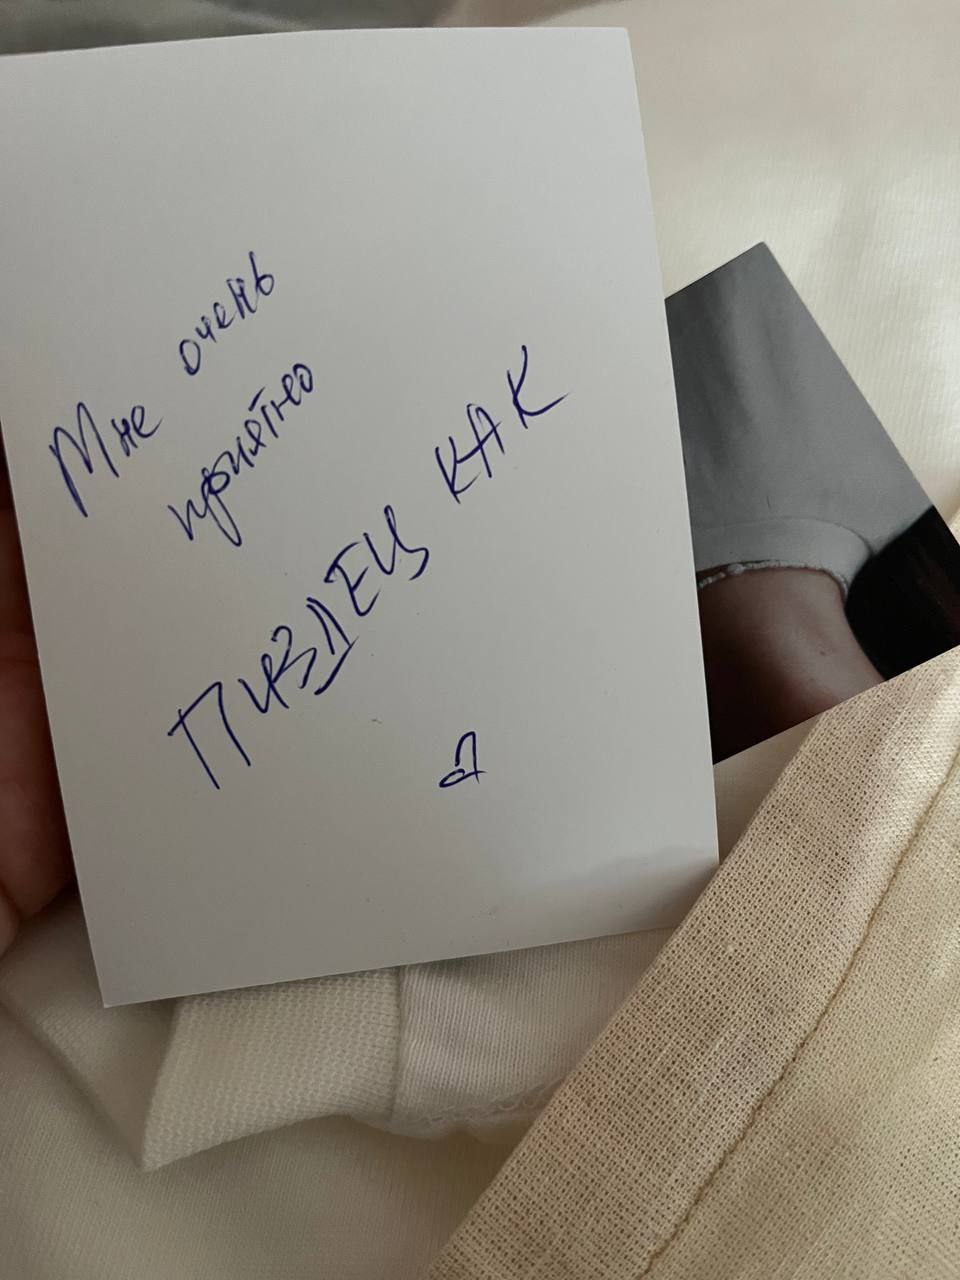 Мне очень
приятно
ПИЗДЕЦ КАК